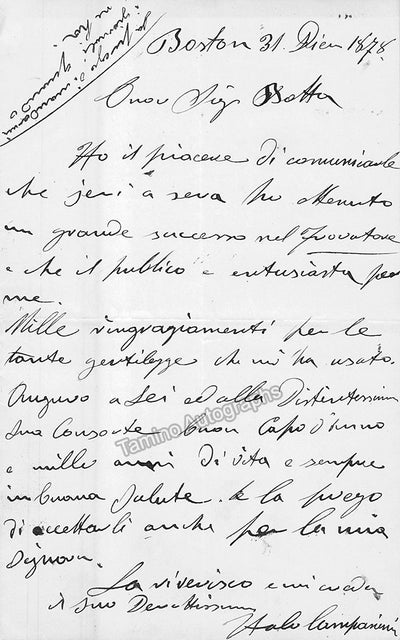 Boston 31. Dicm 1878.
Onor Sigr Botta
Ho il piacere di comunicarle
che jeri a sera ho ottenuto
un grande successo nel Trovatore
e che il publico è entusiasta per
me.
Mille ringragiamenti per le
tante gentilezze che mi ha usato.
Auguro a Lei ed alla Distintissima
Sua Consorte buon Capo d'anno
e mille anni di vita e sempre
in buona salute. e la prego
di accettarli anche per la mia
Signora.
La riverisco e mi creda
il Suo Devottissimo
Italo Campanini
La prego di mandarmi
i giornali quando
ne ha
Tamino Autographs